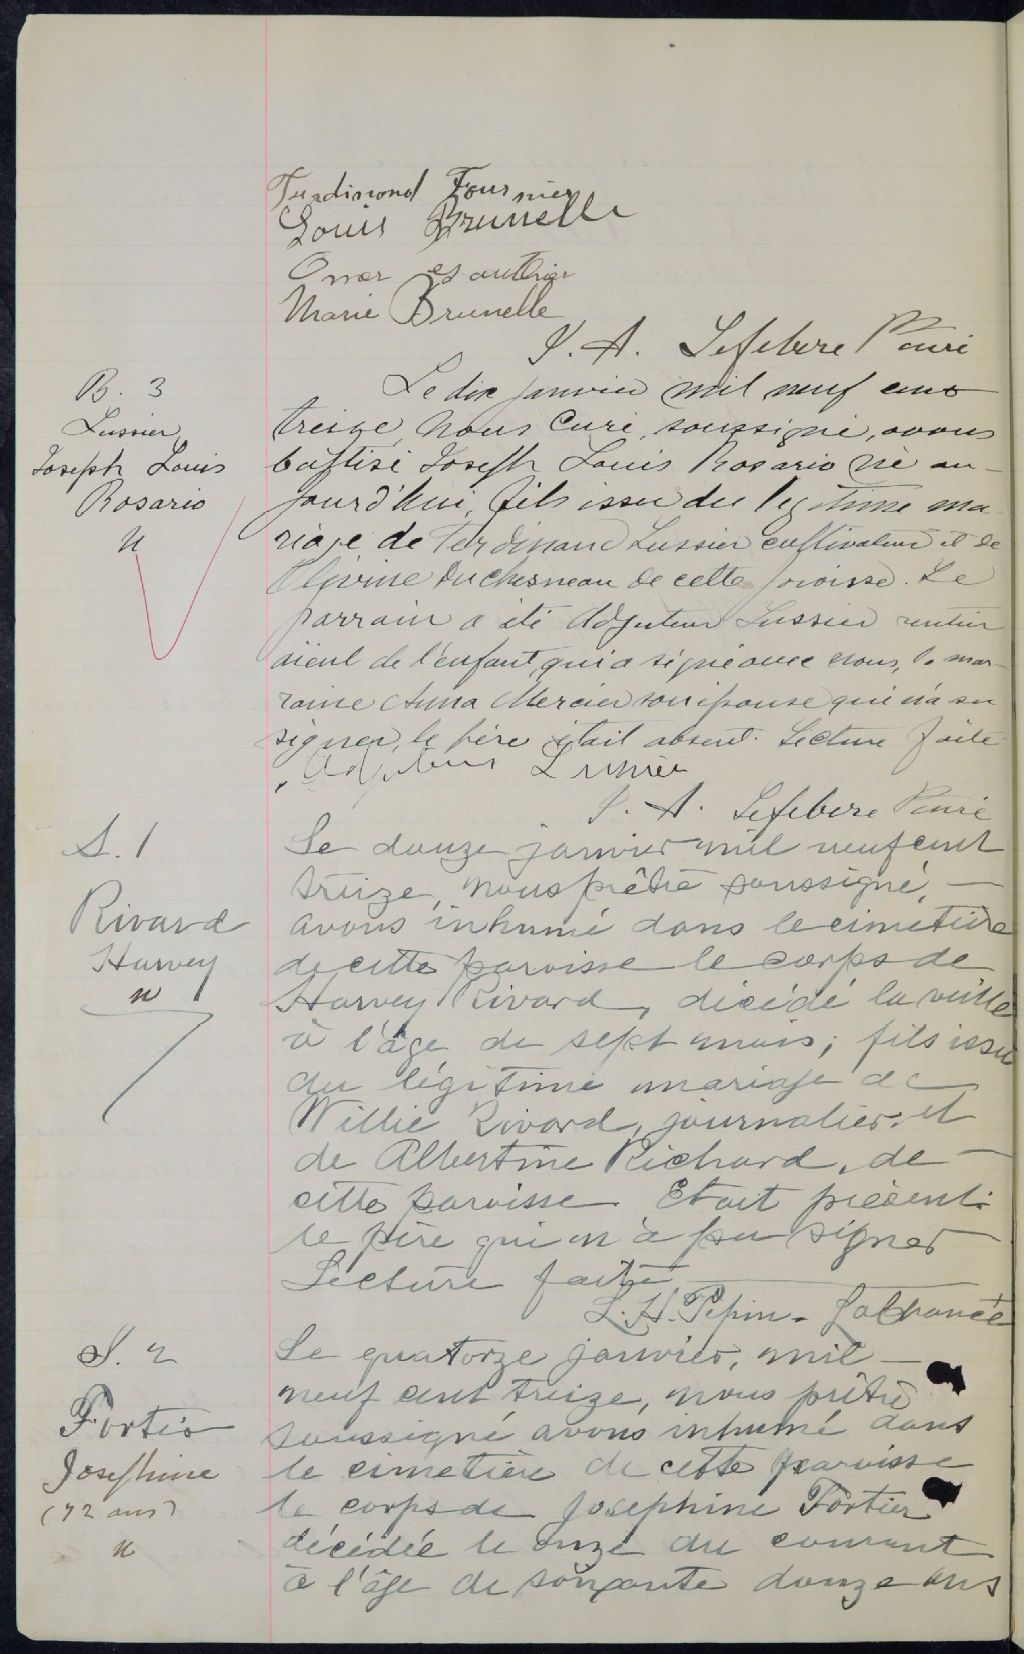 Ferdinand Fournier
Louis Brunelle
Omer
Marie Brunelle
J. A. Lefebvre Ptre curé
B. 3
Lussier
Joseph Louis
Rosario
N
Le dix janvier mil neuf cent
treize, nous curé, soussigné, avons
baptisé Joseph Louis Rosario né au-
jourd'hui, fils issu du légitime ma-
riage de Ferdinand Lussier cultivateur et de
Olévine Duchesneau de cette paroisse. Le
parrain a été Adjuteur Lussier rentier
aieul de l'enfant, qui a signé avec nous, la mar-
raine Anna Mercier son épouse qui n'a su
signer, le père était absent. Lecture faite
Adjuteur Lussier
J. A. Lefebvre Ptre curé
S. 1
Rivard
Harvey
N
Le douze janvier mil neuf cent
treize, nous prêtre soussigné, —
avons inhumé dans le cimetière
de cette paroisse le corps de
Harvey Rivard, décédé la veille
à l'âge de sept mois; fils issu
du légitime mariage de
Willie Rivard, journalier, et
de Albertine Richard, de —
cette paroisse. Etait présent:
le père qui n'a pu signer
Lecture faite
L. H. Pepin - Lachance
S. 2
Fortier
Josephine
(72 ans)
N
Le quatorze janvier, mil —
neuf cent treize, nous prêtre
soussigné avons inhumé dans
le cimetière de cette paroisse
le corps de Josephine Fortier
décédée le onze du courant
à l'âge de soixante douze ans